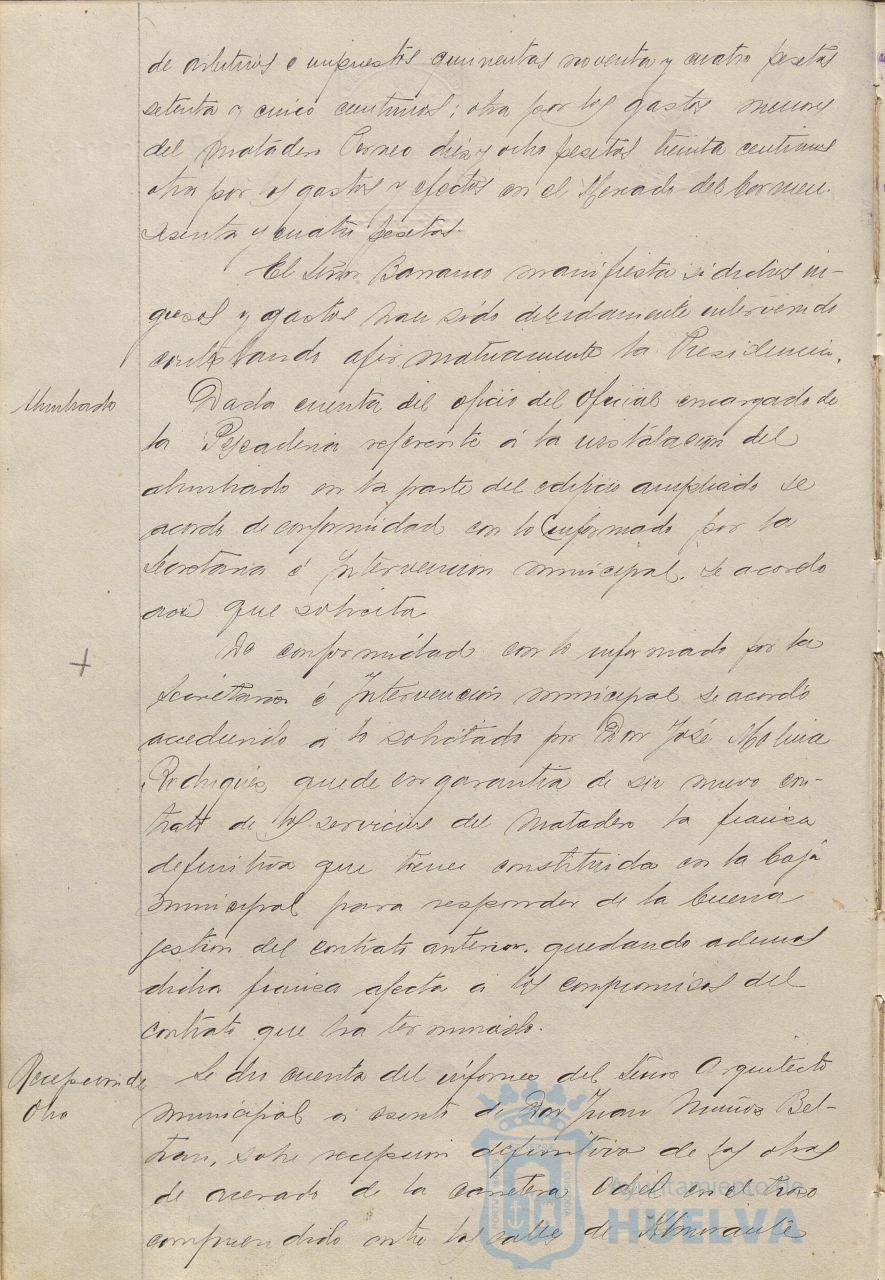 de arbitrios e impuestos quinientas noventa y cuatro pesetas
setenta y cinco centimos; otra por los gastos menores
del matadero Correo diez y ocho pesetas treinta centimos
otra por los gastos y efectos en el Mercado del Carmen.
sesenta y cuatro pesetas.
El Señor Barranco manifiesta si dichos in-
gresos y gastos han sido debidamente intervenido
contestando afirmativamente la Presidencia.
Alumbrado
Dada cuenta del oficio del Oficial encargado de
la Pescaderia referente á la instalacion del
alumbrado en la parte del edificio ampliado se
acordo de conformidad con lo informado por la
Secretaria é Intervencion municipal. se acordo
que solicita
+
De conformidad con lo informado por la
Secretaria é Intervención municipal se acordó
accediendo a lo solicitado por Don José Molina
Rodriguez quede en garantia de su nuevo con-
trato de los servicios del matadero la fianza
definitiva que tiene constituida en la Caja
municipal para responder de la buena
gestion del contrato anterior. quedando ademas
dicha fianza afecta a los compromisos del
contrato que ha terminado.
Recepcion de
Obra
Se dio cuenta del informe del Señor Arquitecto
municipal a escrito de Don Juan Muñoz Bel-
tran, sobre recepcion definitiva de las obras
de acerado de la carretera Odiel en el trozo
comprendido entre las calles de Almirante
Ayuntamiento de
HUELVA